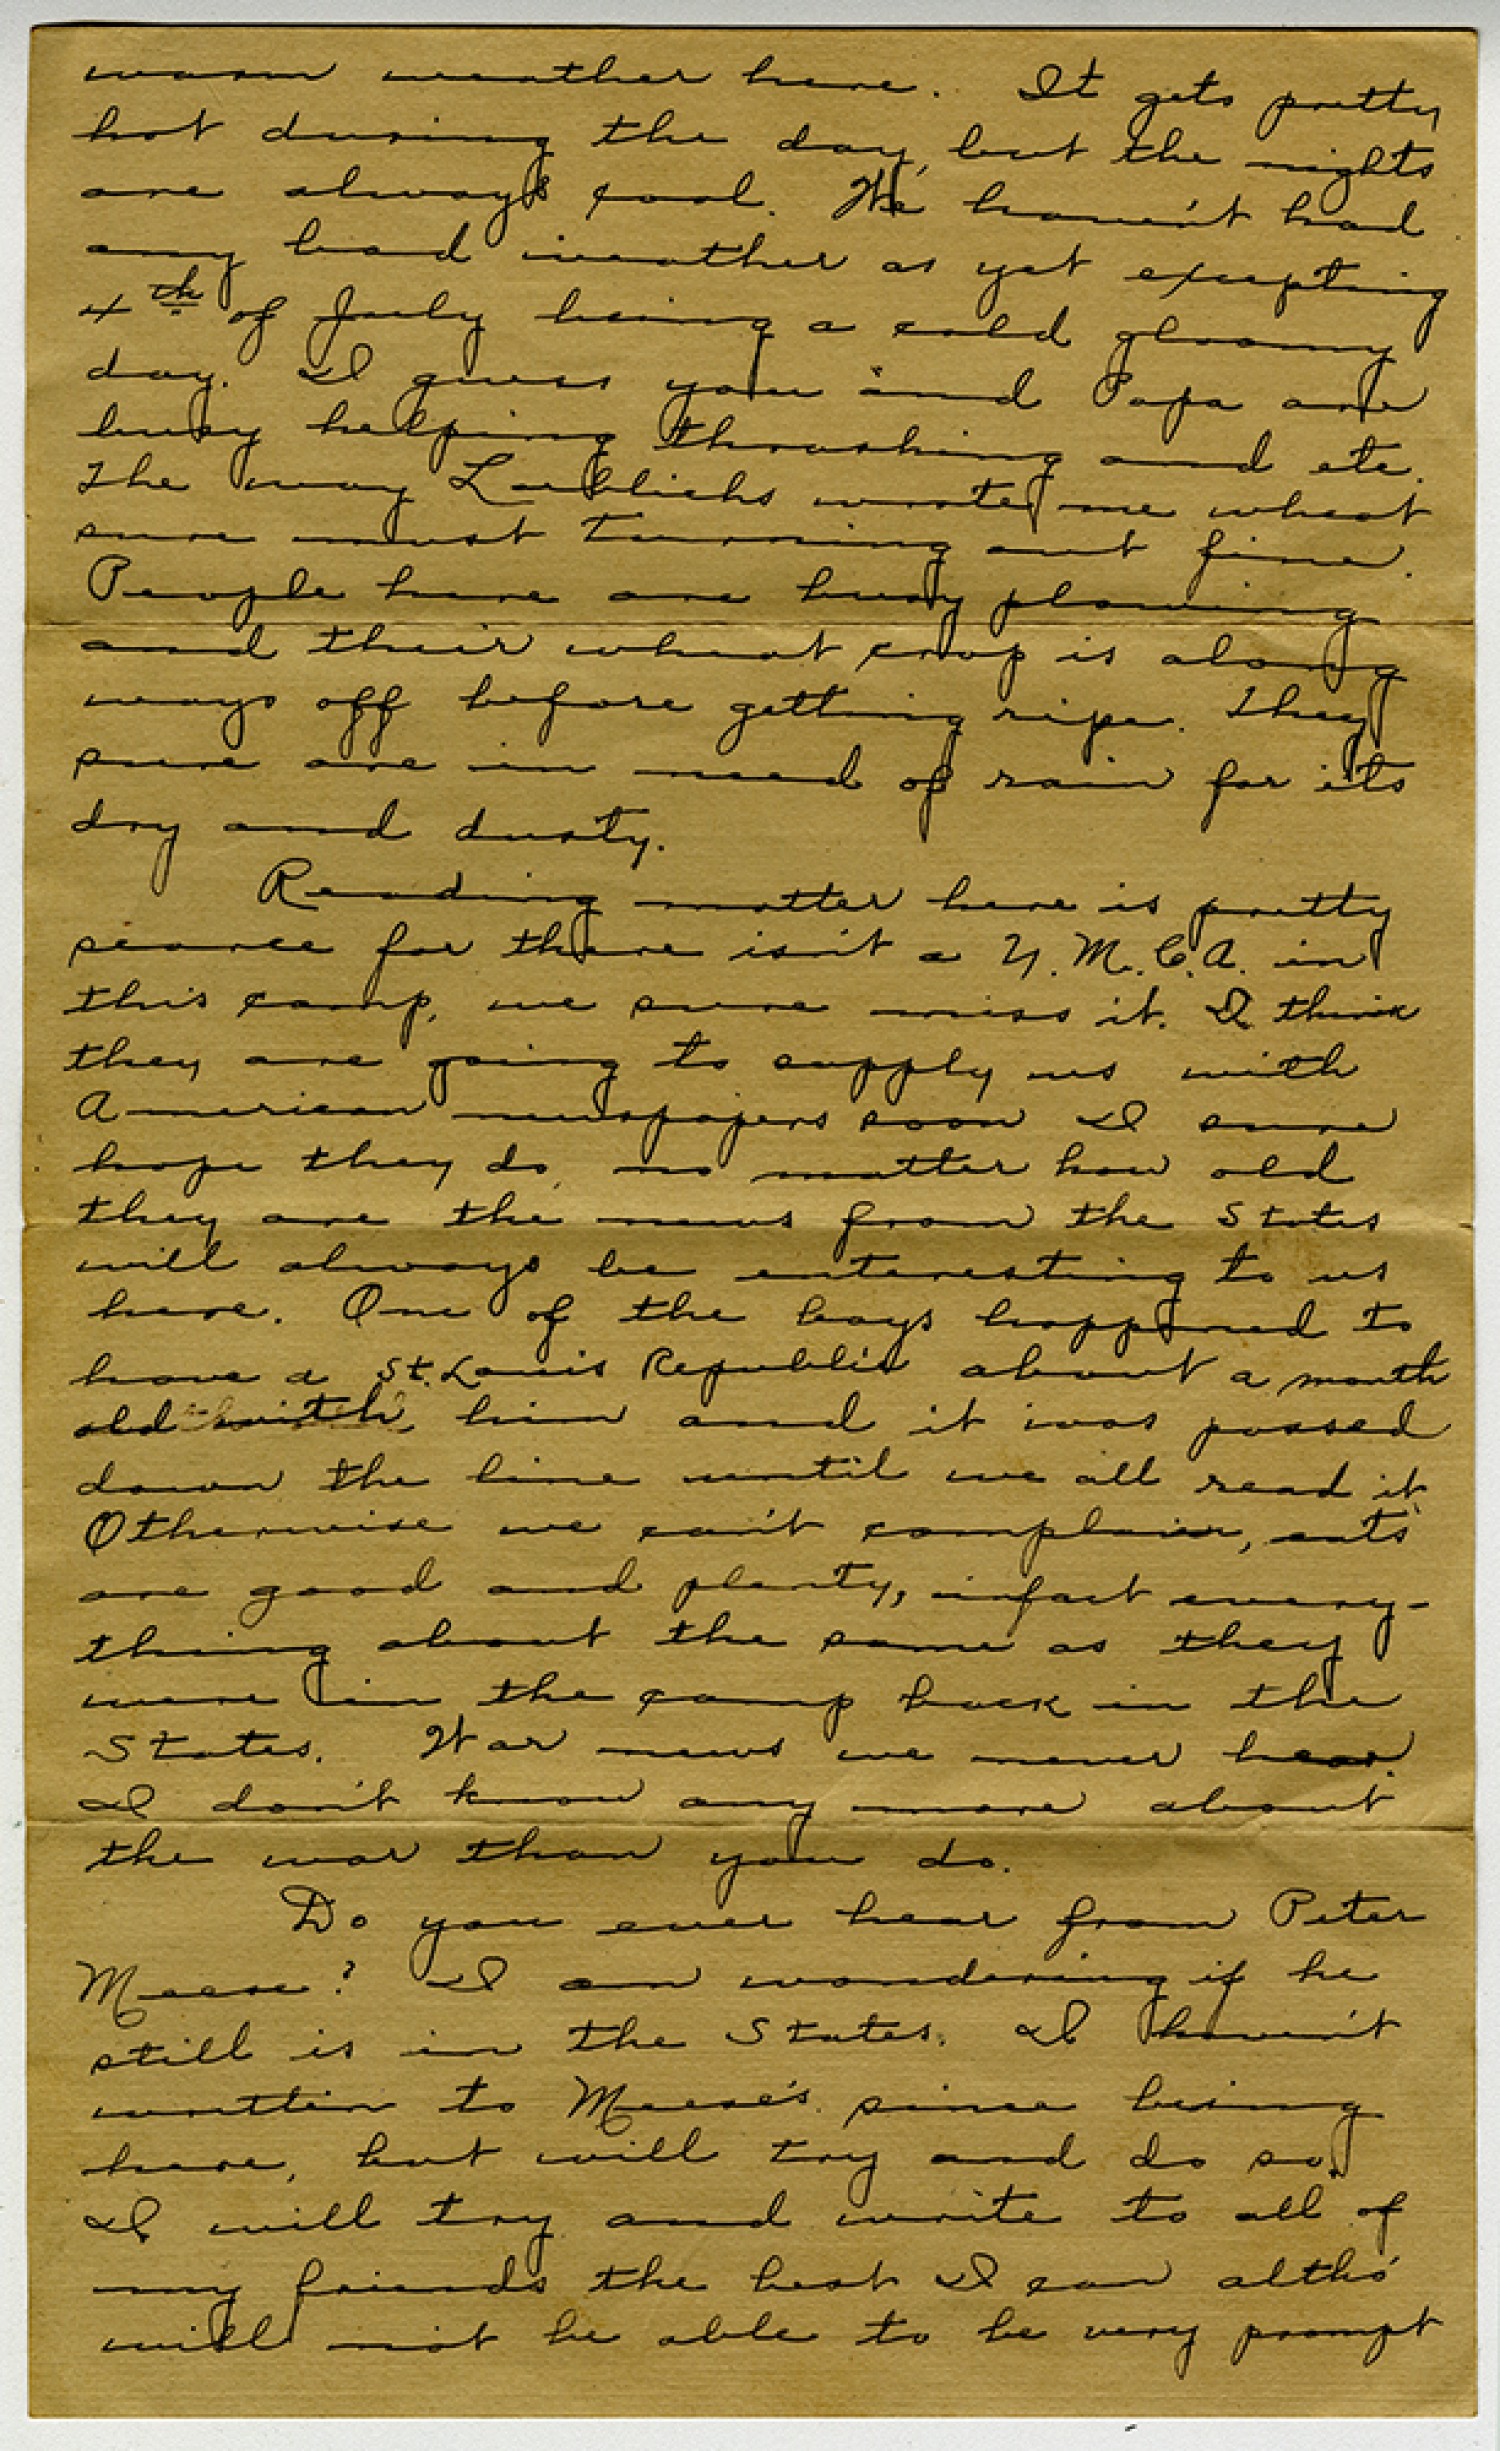 warm weather here. It gets pretty
hot during the day, but the nights
are always cool. We haven't had
any bad weather as yet excepting
4th of July being a cold gloomy
day. I guess you and Papa are
busy helping thrashing and etc.
The way Loeblichs wrote me wheat
sure must turning out fine.
People here are busy plowing
and their wheat crop is along
ways off before getting ripe. They
sure are in need of rain for its
dry and dusty.
Reading matter here is pretty
scarce for there isn't a Y.M.C.A. in
this camp, we sure miss it. I think
they are going to supply us with
American newspapers soon I sure
hope they do, no matter how old
they are the news from the States
will always be interesting to us
here. One of the boys happened to
have a St. Louis Republic about a month
old with him and it was passed
down the line until we all read it.
Otherwise we can't complain, eats
are good and plenty, infact every-
thing about the same as they
were in the camp back in the
States. War news we never hear.
I don't know any more about
the war than you do.
Do you ever hear from Peter
Meese? I am wondering if he
still is in the States. I haven't
written to Meese's since being
here, but will try and do so.
I will try and write to all of
my friends the best I can altho'
will not be able to be very prompt